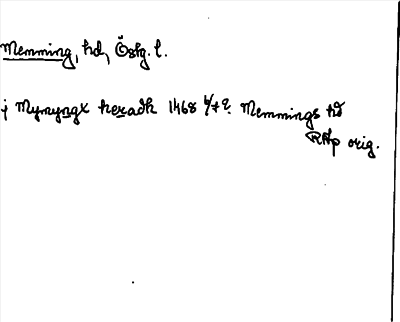 Memming, hd, Östg. l.
j Mymyngx heradh 1468 4/7 ?. Memmings hd
RAp orig.